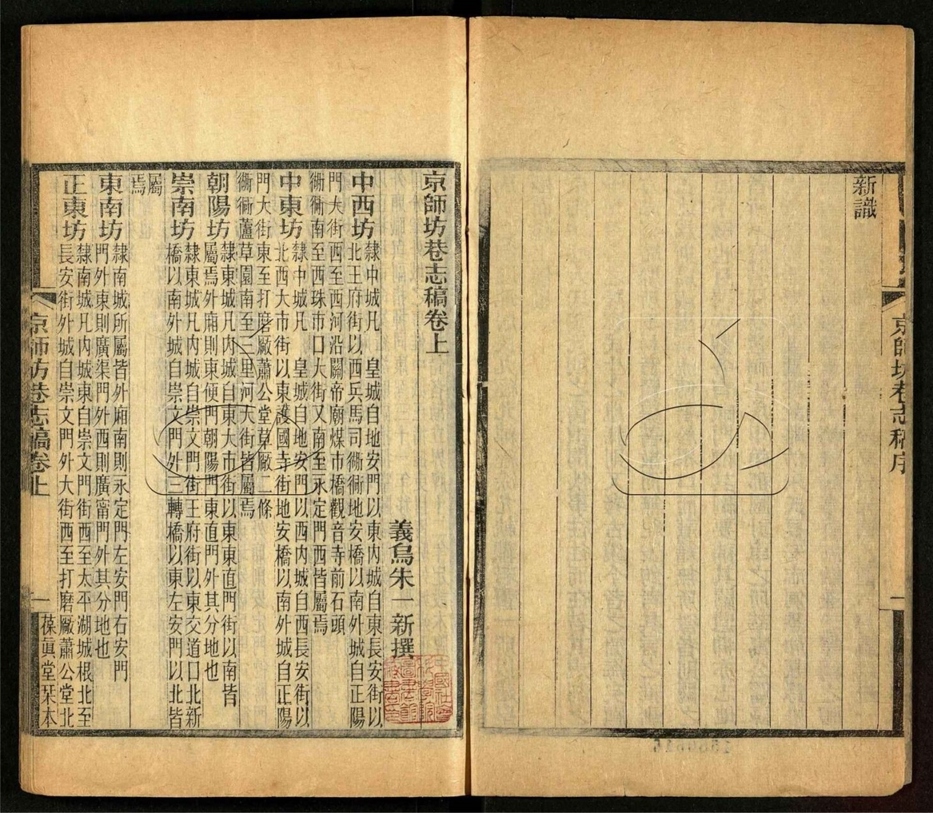 京師坊巷志稿序
新識
京師坊巷志稿卷上
義烏朱一新撰
中西坊
隸中城凡　皇城自地安門以東內城自東長安街以
北王府街以西兵馬司衚衕地安橋以南外城自正陽
門大街西至西河沿關帝廟煤市橋觀音寺前石頭
衚衕南至西珠市口大街又南至永定門西皆屬焉
中東坊
隸中城凡　皇城自地安門以西內城自西長安街以
北西大市街以東護國寺街地安橋以南外城自正陽
門大街東至打磨厰蕭公堂草厰二條
衚衕蘆草園南至三里河大街皆屬焉
朝陽坊
隸東城凡內城自東大市街以東東直門街以南皆
屬焉外廂則東便門朝陽門東直門外其分地也
崇南坊
隸東城凡內城自崇文門街王府街以東交道口北新
橋以南外城自崇文門外三轉橋以東左安門以北皆
屬
焉
東南坊
隸南城所屬皆外廂南則永定門左安門右安門
門外東則廣渠門外西則廣甯門外其分地也
正東坊
隸南城凡內城東自崇文門街西至太平湖城根北至
長安街外城自崇文門外大街西至打磨厰蕭公堂北
京師坊巷志稿卷上
一
葆眞堂栞本